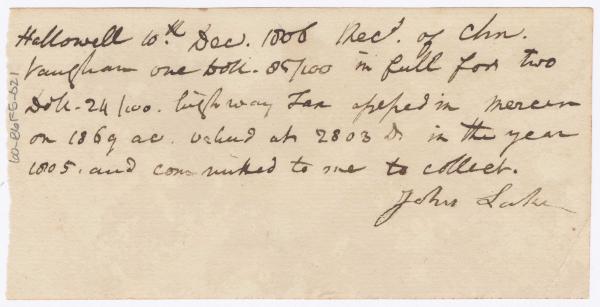 Hallowell 10th Dec. 1806 Rec'd. of Chs.
Vaughan one Doll. 85/100 in full for two
Doll. 24/100. highway Tax assessed in Mercer
on 1869 ac. valued at 2803 D. in the year
1805. and committed to me to collect.
John Lake
60-86F5-b21